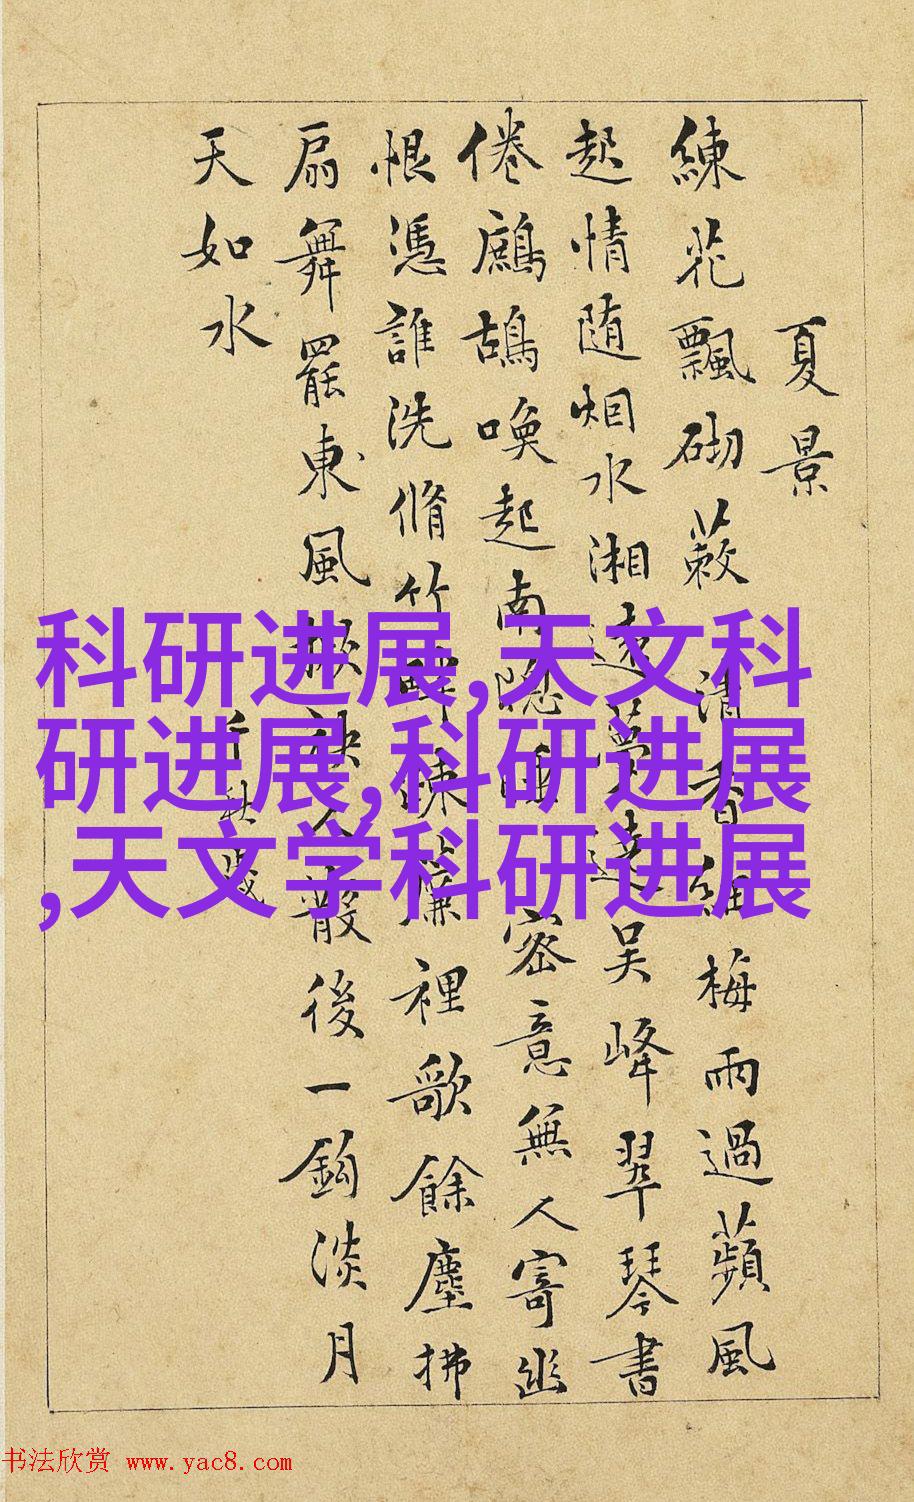 夏景
練花飄砌蔌清香細梅雨過蘋風
起情随烟水湘遠夢遶吳峰翠琴書
倦鷓鴣喚起南隐睡密意無人寄幽
恨憑誰洗脩竹畔疎簾裡歌餘塵拂
扇舞罷東風掀袂人散後一鈎淡月
天如水
千秋歲
科研进展,天文科
研进展,科研进展
,天文学科研进展
书法欣赏 www.yac8.com